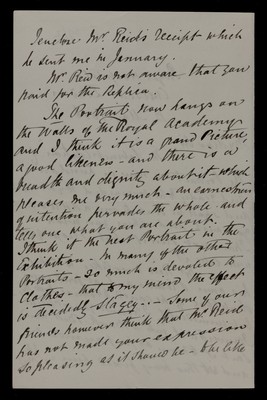 I enclose Mr. Reid's receipt which
he sent me in January.
Mr. Reid is not aware that you
paid for the Replica.
The Portrait now hangs on
the Walls of the Royal Academy
and I think it is a grand Picture,
a good likeness - and there is a
breadth and dignity about it which
pleases me very much - an earnestness
of intention pervades the whole and
tells one what you are about.
I think it the best Portrait in the
Exhibition - In many of the other
Portraits - so much is devoted to
Clothes - that to my mind the effect
is decidedly Stagey... - Some of our
friends however think that Mr. Reid
has not made your expression
so pleasing as it should be -